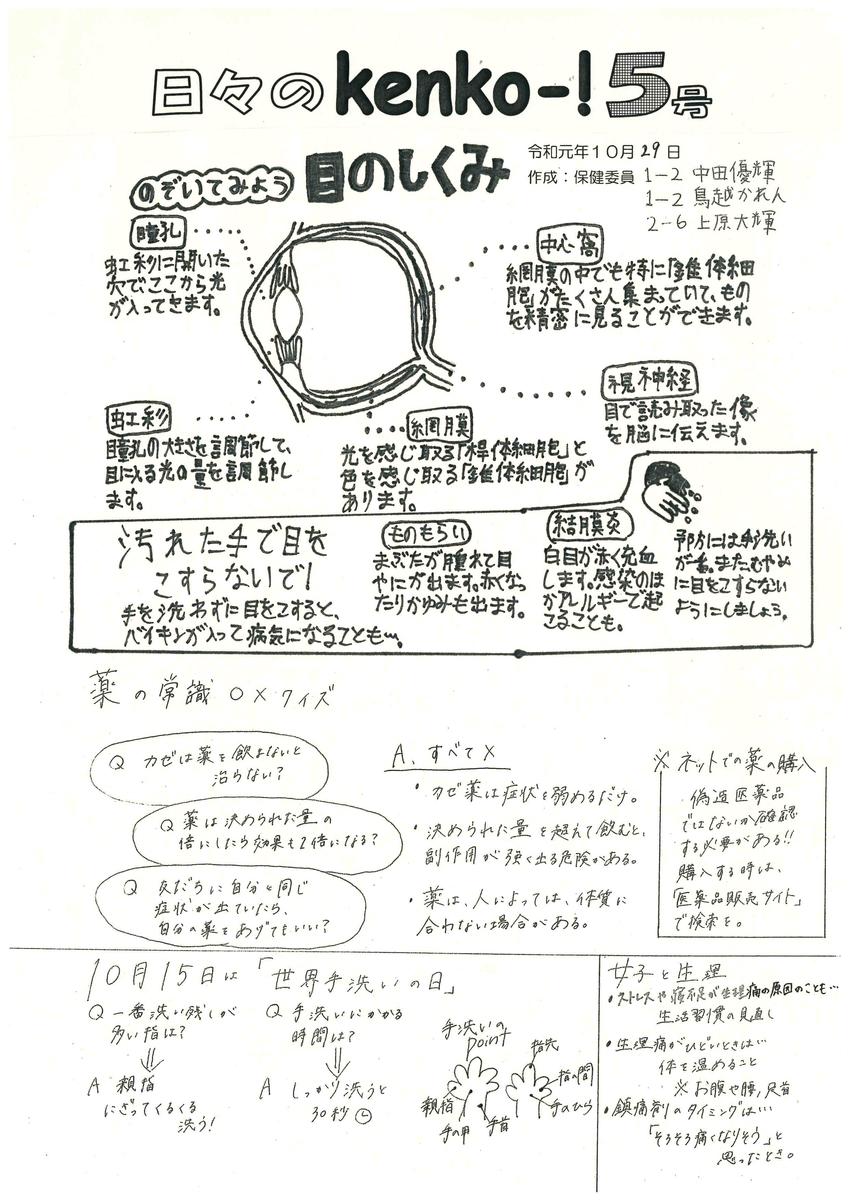 日々のkenko-!5号
令和元年10月29日
作成:保健委員 1-2 中田優輝
1-2 鳥越かれん
2-6 上原大輝
のぞいてみよう 目のしくみ
瞳孔
虹彩に開いた
穴で、ここから光
が入ってきます。
中心窩
網膜の中でも特に「錐体細
胞」がたくさん集まっていて、もの
を精密に見ることができます。
視神経
目で読み取った像
を脳に伝えます。
虹彩
瞳孔の大きさを調節して、
目に入る光の量を調節し
ます。
網膜
光を感じ取る「桿体細胞」と
色を感じ取る「錐体細胞」が
あります。
汚れた手で目を
こすらないで!
手を洗わずに目をこすると、
バイキンが入って病気になることも…。
ものもらい
まぶたが腫れて目
やにが出ます。赤くなっ
たりかゆみも出ます。
結膜炎
白目が赤く充血
します。感染のほ
かアレルギーで起
こることも。
予防には手洗い
が一番。また、むやみ
に目をこすらない
ようにしましょう。
薬の常識 ○×クイズ
Q カゼは薬を飲まないと
治らない?
Q 薬は決められた量の
倍にしたら効果も2倍になる?
Q 友だちに自分と同じ
症状が出ていたら、
自分の薬をあげてもいい?
A. すべて×
・カゼ薬は症状を弱めるだけ。
・決められた量を超えて飲むと、
副作用が強く出る危険がある。
・薬は、人によっては、体質に
合わない場合がある。
※ネットでの薬の購入
偽造医薬品
ではないか確認
する必要がある!!
購入する時は、
「医薬品販売サイト」
で検索を。
10月15日は「世界手洗いの日」
Q 一番洗い残しが
多い指は?
A 親指
にぎってくるくる
洗う!
Q 手洗いにかかる
時間は?
A しっかり洗うと
30秒
手洗いの
point
指先
指の間
親指
手のひら
手の甲
手首
女子と生理
・ストレスや寝不足が生理痛の原因のことも…
生活習慣の見直し
・生理痛がひどいときは…
体を温めること
※お腹や腰、足首
・鎮痛剤のタイミングは…
「そろそろ痛くなりそう」と
思ったとき。